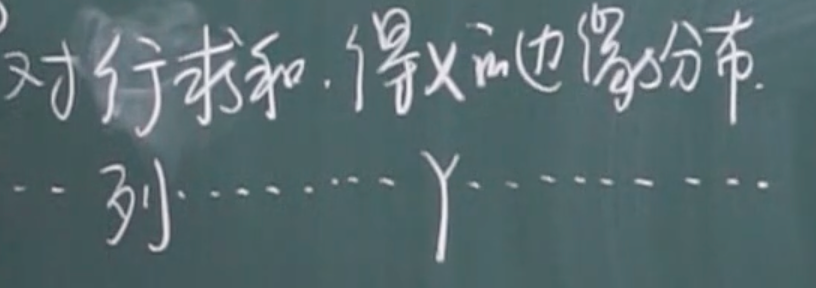 对行求和.得X的边缘分布.
-- 列---------Y-----------